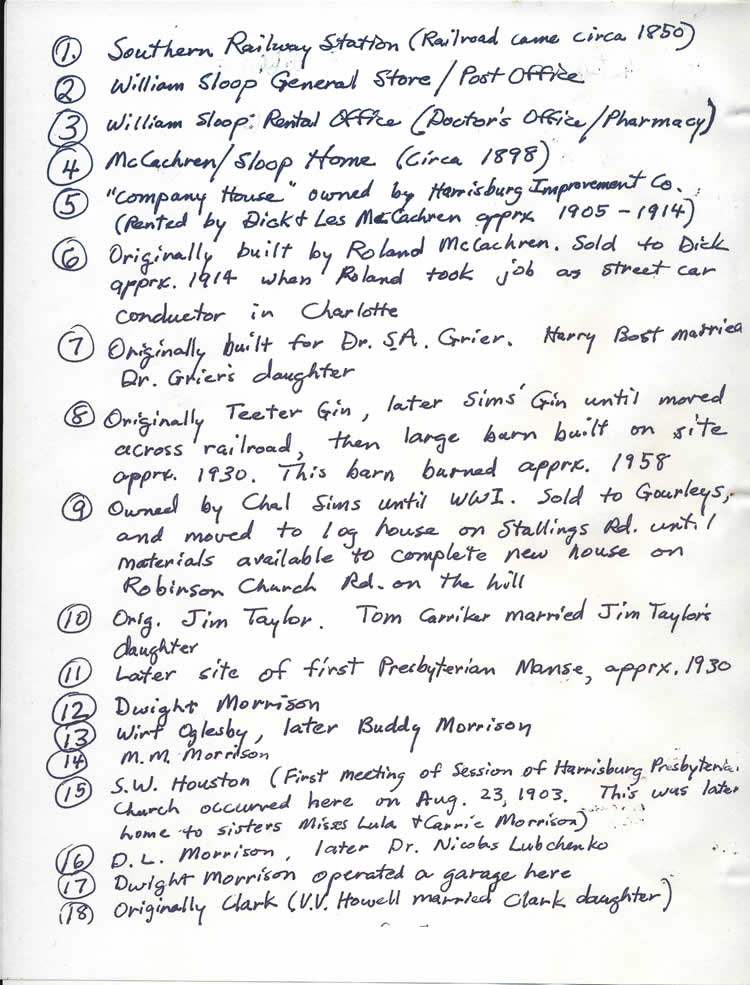 1. Southern Railway Station (Railroad came circa 1850)
2 William Sloop General Store / Post Office
3 William Sloop: Rental Office (Doctor's Office / Pharmacy)
4 McCachren / Sloop Home (Circa 1898)
5 "Company House" owned by Harrisburg Improvement Co.
(Rented by Dick & Les McCachren apprx 1905 - 1914)
6 Originally built by Roland McCachren. Sold to Dick
apprx. 1914 when Roland took job as street car
conductor in Charlotte
7 Originally built for Dr. S.A. Grier. Harry Bost married
Dr. Grier's daughter
8 Originally Teeter Gin, later Sims' Gin until moved
across railroad, then large barn built on site
apprx. 1930. This barn burned apprx. 1958
9 Owned by Chal Sims until WWI. Sold to Gourleys,
and moved to log house on Stallings Rd. until
materials available to complete new house on
Robinson Church Rd. on the hill
10 Orig. Jim Taylor. Tom Carriker married Jim Taylor's
daughter
11 Later site of first Presbyterian Manse, apprx. 1930
12 Dwight Morrison
13 Wirt Oglesby, later Buddy Morrison
14 M.M. Morrison
15 S.W. Houston (First meeting of Session of Harrisburg Presbyterian
Church occurred here on Aug. 23, 1903. This was later
home to sisters Misses Lula & Carrie Morrison)
16 D.L. Morrison, later Dr. Nicolas Lubchenko
17 Dwight Morrison operated a garage here
18 Originally Clark (V.V. Howell married Clark daughter)